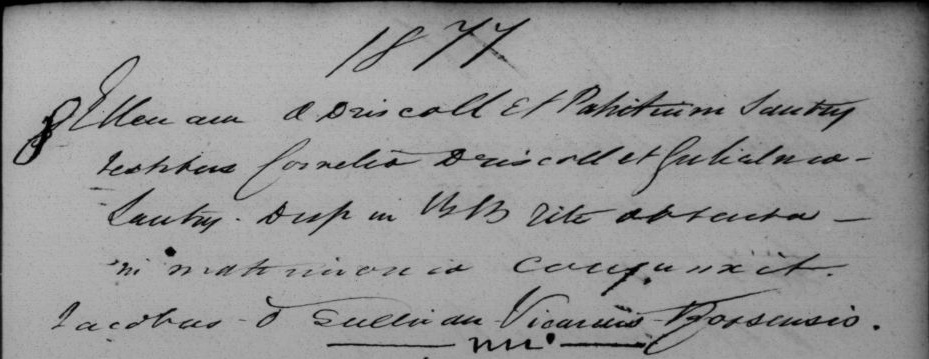 1877
8 Ellenam O Driscoll et Patritium Santry
testibus Cornelio Driscoll et Gulielmo
Santry. Disp in BB rite obtenta –
in matrimonio conjunxit.
Jacobus O Sullivan Vicarius Rossensis.